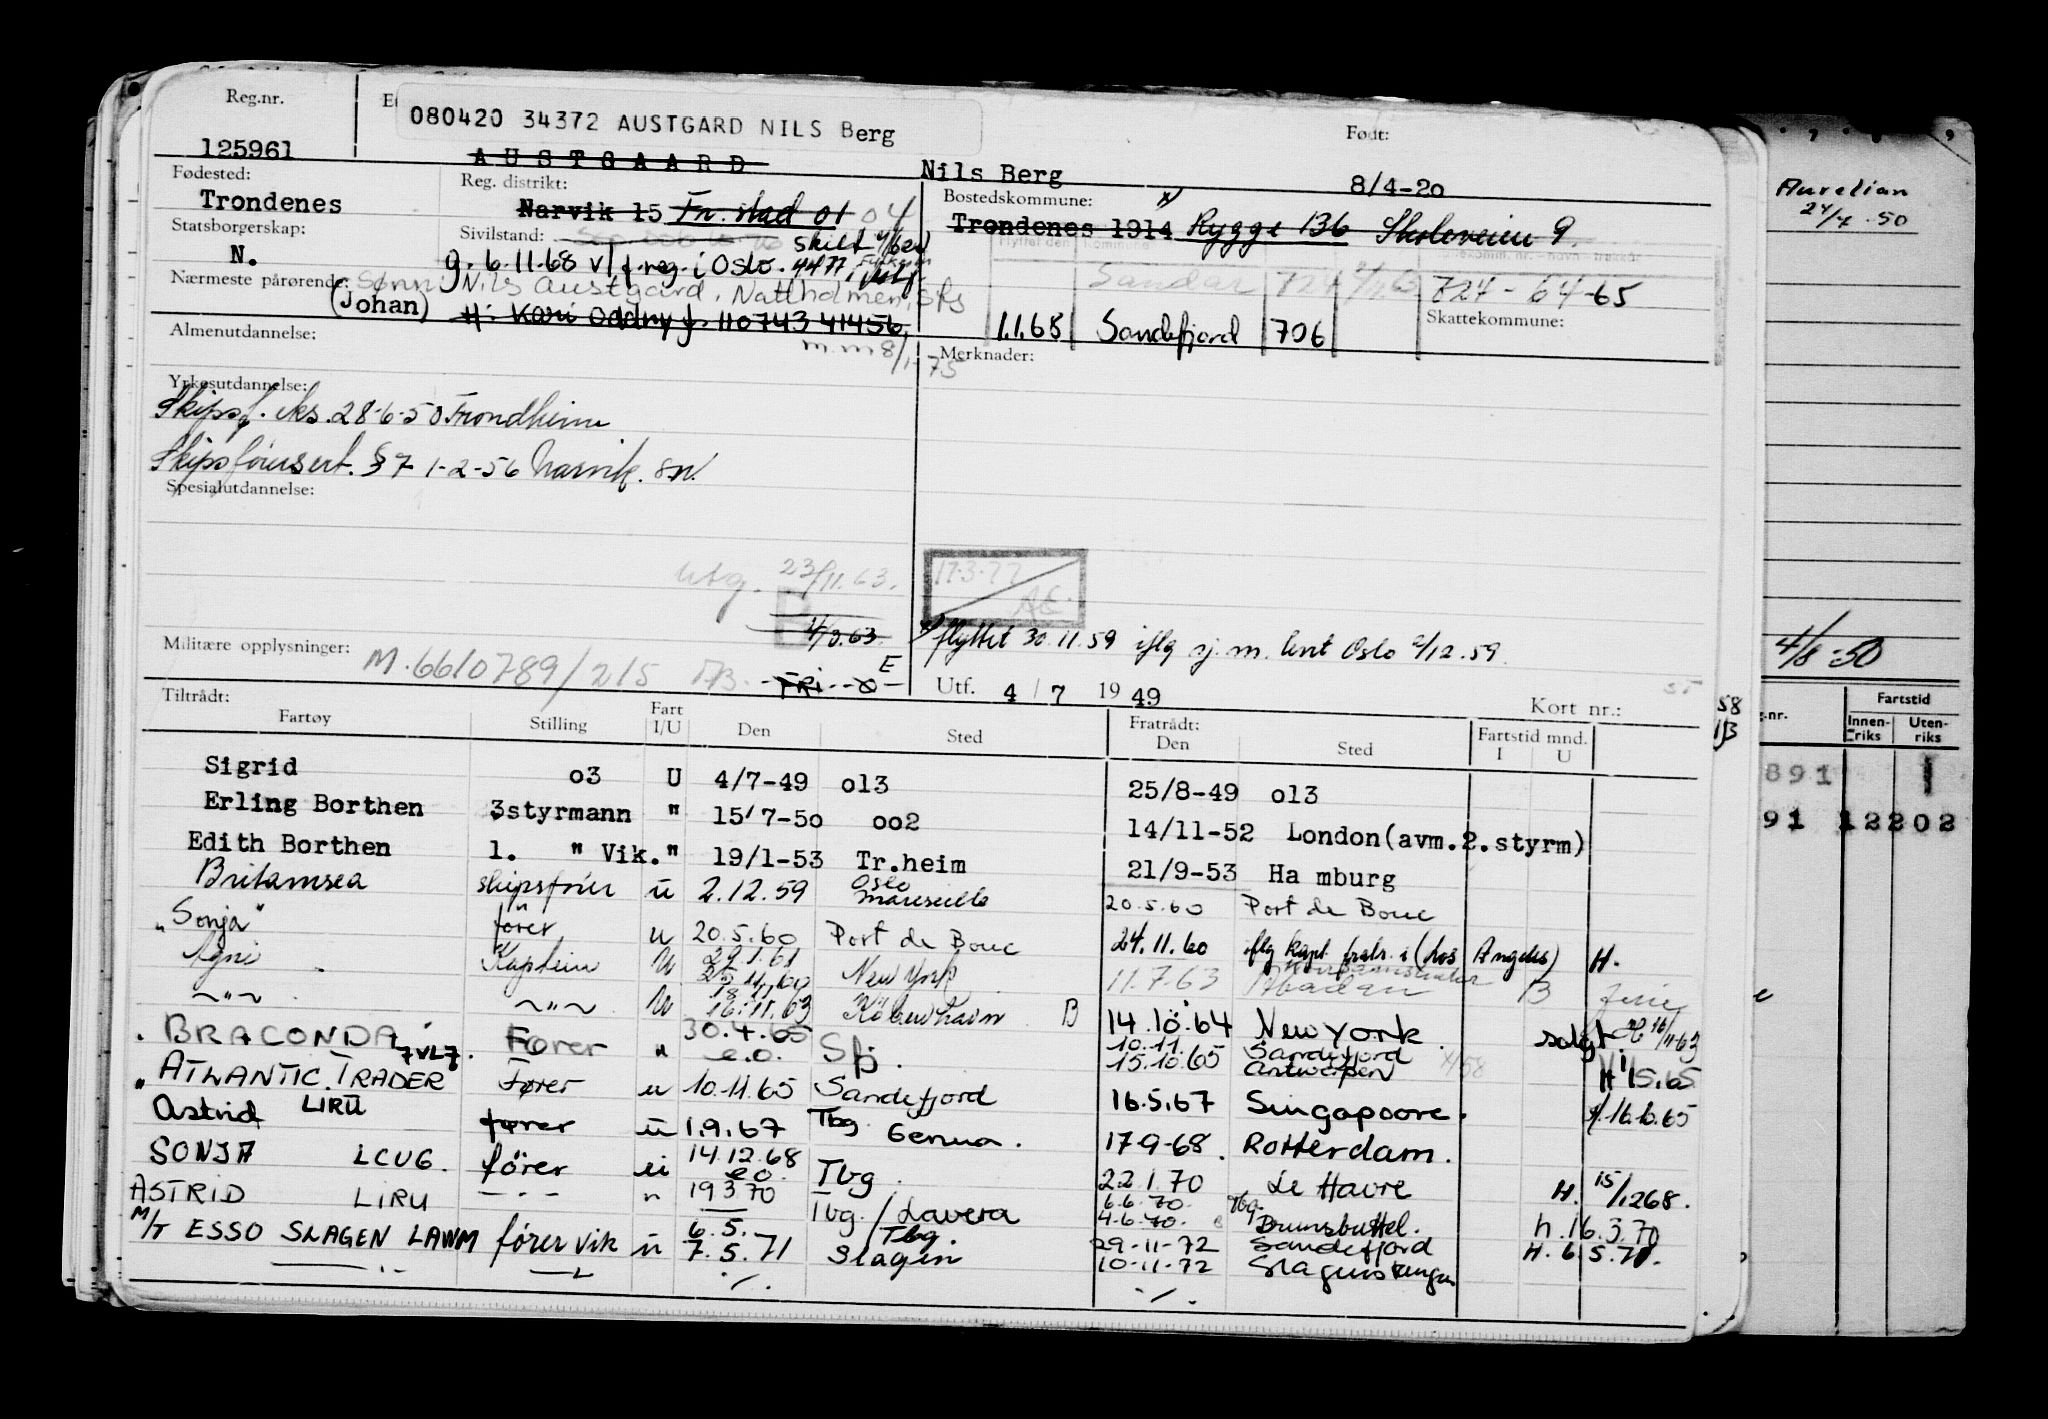 Reg.nr.
080420 34372 AUSTGARD NILS Berg
Født:
125961
AUSTGAARD
Nils Berg
8/4-20
Fødested:
Reg. distrikt:
Bostedskommune:
Trondenes
Narvik 15 Fr. stad 01 04
Trondenes 1914 Rygge 136 Skoleveien 9.
Statsborgerskap:
Sivilstand:
skilt
N.
g. 6.11.68 v/ f.reg. i Oslo. 4477
Sandar 724
724 - 64-65
Nærmeste pårørende:
Sønn: Nils Austgard, Nattholmen, Sfj
(Johan)
H: Kari Oddny f. 110743 41456
1.1.68 Sandefjord 706
Skattekommune:
Almenutdannelse:
m.m 8/1-75
Merknader:
Yrkesutdannelse:
Skipsf. eks. 28-6-50 Trondheim
Skipsførersert. §7 1-2-56 Narvik.
Spesialutdannelse:
utg. 23/11.63.
17.3.77
flyttet 30.11.59 iflg sj. m. knt Oslo 2/12.59.
Militære opplysninger:
M.6610789/215
FRI
E
Utf. 4 / 7 19 49
Kort nr.:
Tiltrådt:
Fartøy Stilling Fart I/U Den Sted
Fratrådt:
Den Sted Fartstid mnd. I U
Sigrid o3 U 4/7-49 o13 25/8-49 o13
Erling Borthen 3styrmann " 15/7-50 oo2 14/11-52 London(avm.2.styrm)
Edith Borthen 1. " Vik." 19/1-53 Tr.heim 21/9-53 Ha mburg
Britamsea skipsfører u 2.12.59 Oslo Marseille 20.5.60 Port de Bouc
"Sonja" fører u 20.5.60 Port de Bouc 24.11.60 iflg kapt. fratr. i (Los Angeles) H.
Agni Kaptein u 29.1.61 New York 11.7.63 Abadan B ferie
—"— —"— u 16.11.63 København B 14.10.64 New York solgt.
BRACONDA 7VL7. Fører " 30.4.65 e.o. Sfj. 10.11. 15.10.65 Sandefjord Antwerpen
ATLANTIC TRADER Fører u 10.11.65 Sandefjord 16.5.67 Singapoore. 16.6.65
Astrid LIRU fører u 1.9.67 Tbg Genua. 17-9-68. Rotterdam.
SONJA LCUG. fører u 14.12.68 e.o. Tbg. 22.1.70 Le Havre H. 15/1268.
ASTRID LIRU — " — " 19.3.70 Tbg. / Lavera 6.6.70. 4.6.70. Tbg. Brunsbuttel. h. 16.3.70
M/T ESSO SLAGEN LAWM fører vik u 6.5. 7.5.71 Tbg. Slagen 29-11-72 10-11-72 Sandefjord Slagenstangen H. 6.5.71.
Aurelian
24/4.50
4/8-50
Fartstid
Innen-riks Uten-riks
891 1
91 12202